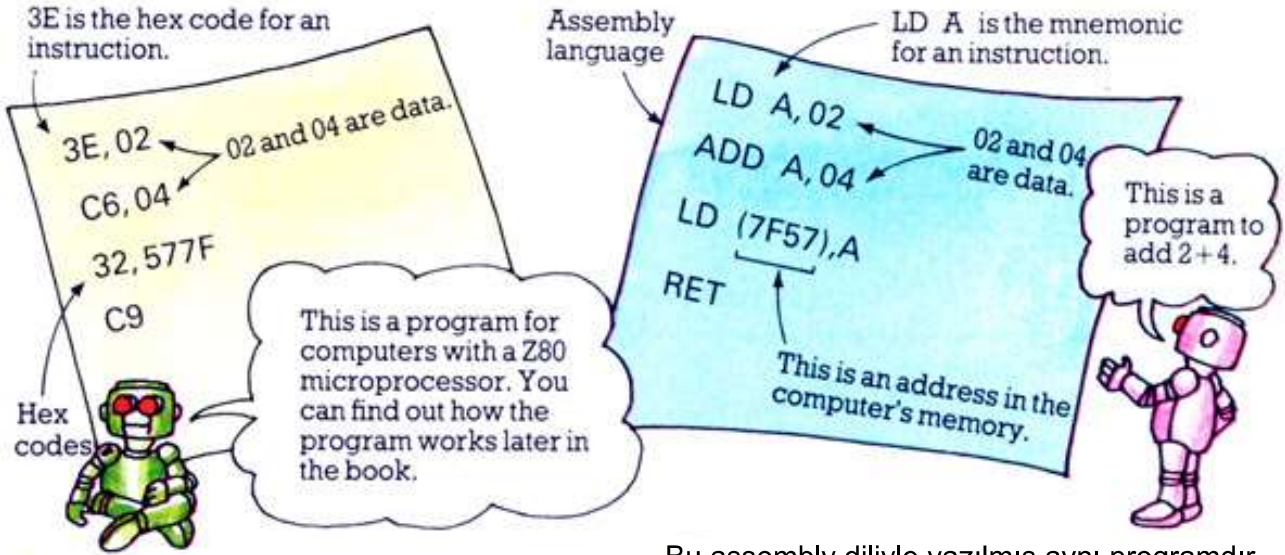 3E is the hex code for an
instruction.
3E, 02
02 and 04 are data.
C6, 04
32, 577F
C9
Hex
codes
This is a program for
computers with a Z80
microprocessor. You
can find out how the
program works later in
the book.
Assembly
language
LD A is the mnemonic
for an instruction.
LD A, 02
ADD A, 04
02 and 04
are data.
LD (7F57),A
RET
This is an address in the
computer's memory.
This is a
program to
add 2+4.
Bu assembly diliyle yazılmış aynı programdır